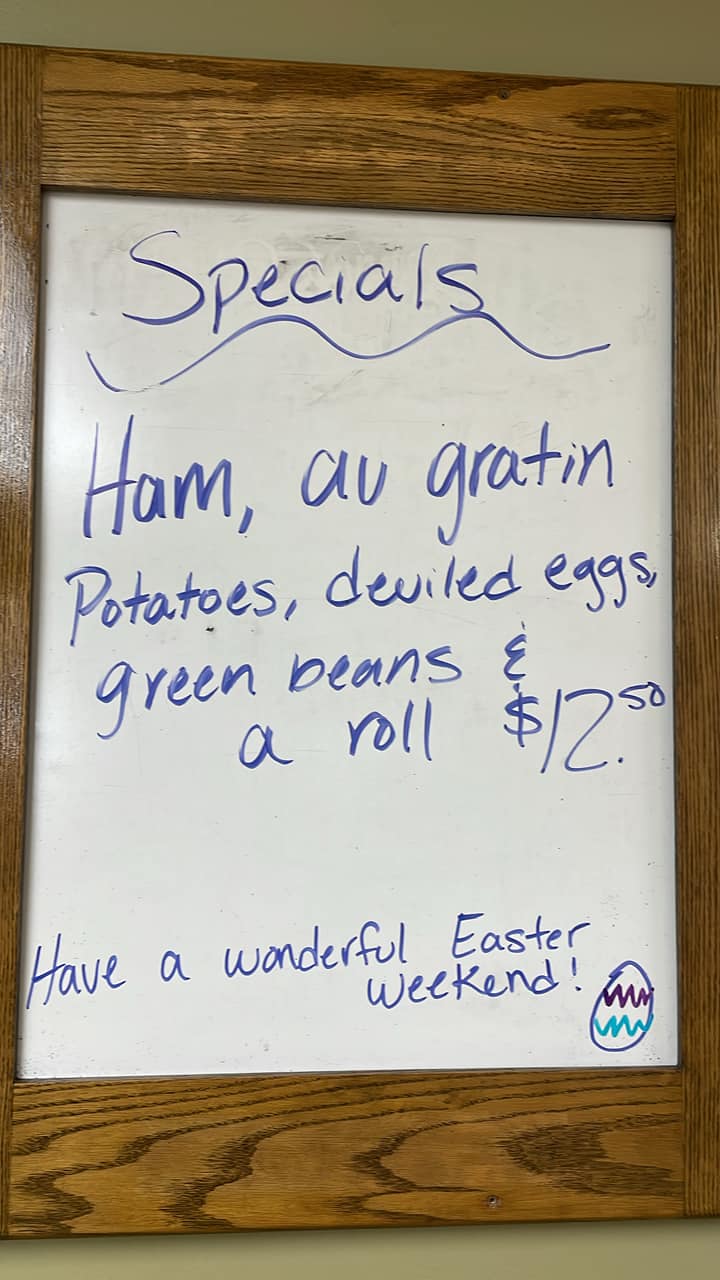 Specials
Ham, au gratin
Potatoes, deviled eggs,
green beans &
a roll $12.50
Have a wonderful Easter
weekend!